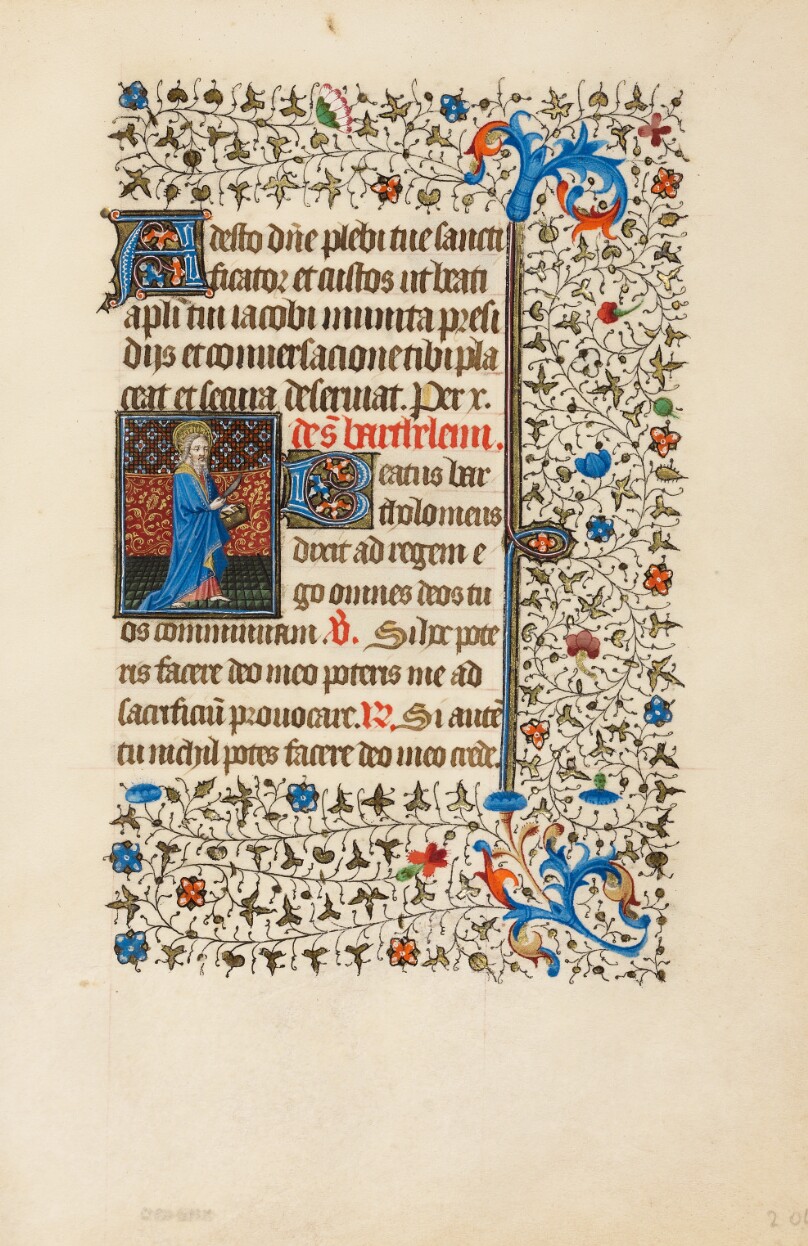 Adesto dñe plebi tue sancti
ficator et custos ut beati
apli tui iacobi munita presi
dijs et conuersacione tibi pla
ceat et secura deseruiat. Per x.
de s̃ barthelemi.
Beatus bar
tholomeus
dixit ad regem e
go omnes deos tu
os comminuam. V̄. Si hec pote
ris facere deo meo poteris me ad
sacrificiū prouocare. R̄. Si autē
tu nichil potes facere deo meo crede.